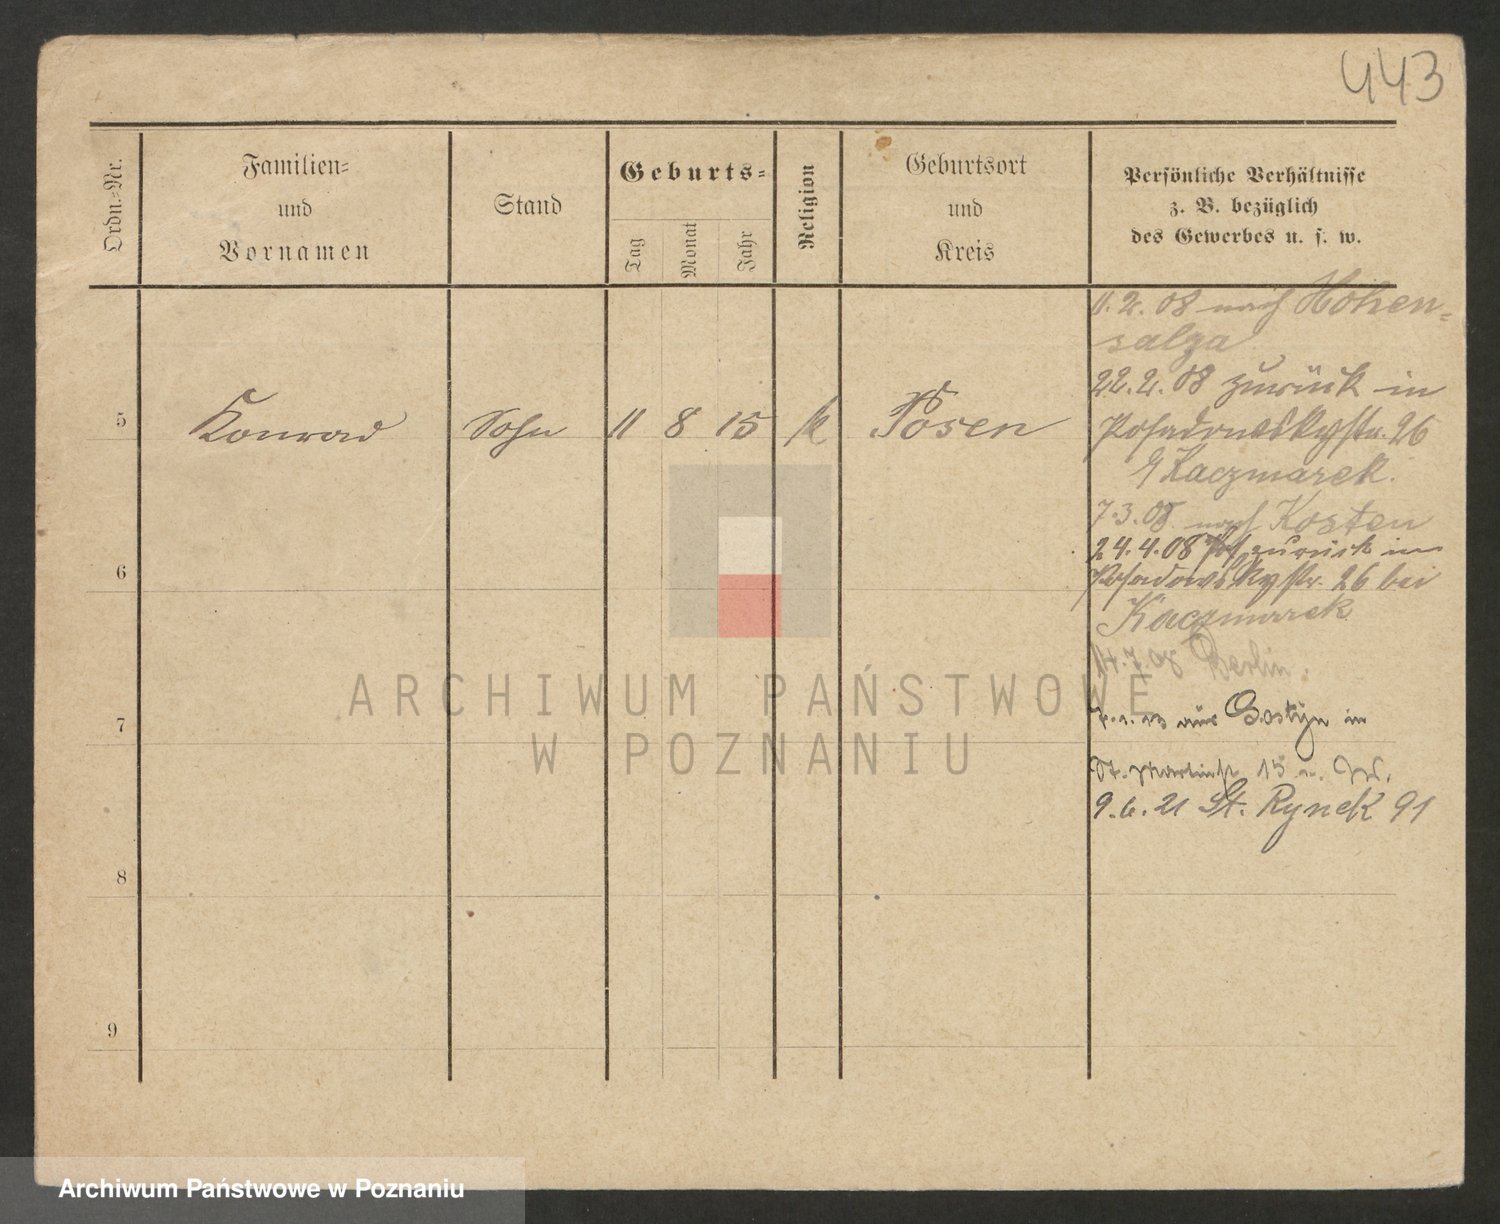 443
Ordn.-Nr.
Familien-
und
Vornamen
Stand
Geburts-
Tag
Monat
Jahr
Religion
Geburtsort
und
Kreis
Persönliche Verhältnisse
z. B. bezüglich
des Gewerbes u. s. w.
5 Konrad Sohn 11 8 15 k Posen
6
7
8
9
11.2.08 nach Hohen-
salza
22.2.08 zurück in
Posadowskystr. 26
Kaczmarek.
7.3.08 nach Kosten
24.4.08 zurück in
Posadowskystr. 26 bei
Kaczmarek
14.7.08 Berlin.
aus Gostyn in
St. Martinstr. 15
9.6.21 St. Rynek 91
ARCHIWUM PAŃSTWOWE
W POZNANIU
Archiwum Państwowe w Poznaniu